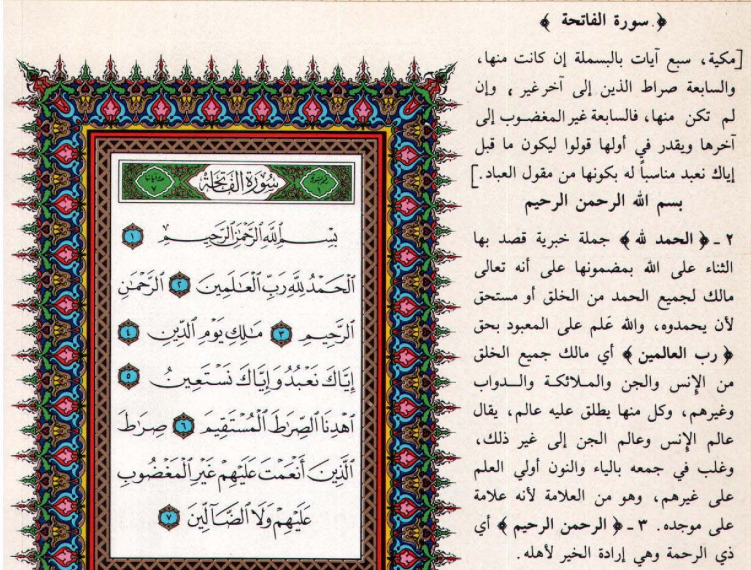 ﴿ سورة الفاتحة ﴾
[مكية، سبع آيات بالبسملة إن كانت منها،
والسابعة صراط الذين إلى آخر غير ، وإن
لم تكن منها، فالسابعة غير المغضوب إلى
آخرها ويقدر في أولها قولوا ليكون ما قبل
إياك نعبد مناسباً له بكونها من مقول العباد.]
بسم الله الرحمن الرحيم
٢ ـ ﴿ الحمد لله ﴾ جملة خبرية قصد بها
الثناء على الله بمضمونها على أنه تعالى
مالك لجميع الحمد من الخلق أو مستحق
لأن يحمدوه، والله عَلم على المعبود بحق
﴿ رب العالمين ﴾ أي مالك جميع الخلق
من الإنس والجن والملائكة والدواب
وغيرهم، وكل منها يطلق عليه عالم، يقال
عالم الإنس وعالم الجن إلى غير ذلك،
وغلب في جمعه بالياء والنون أولي العلم
على غيرهم، وهو من العلامة لأنه علامة
على موجده. ٣ ـ ﴿ الرحمن الرحيم ﴾ أي
ذي الرحمة وهي إرادة الخير لأهله.
سُورَةُ الفَاتِحَةِ
بِسْمِ ٱللَّهِ ٱلرَّحْمَٰنِ ٱلرَّحِيمِ ١
ٱلْحَمْدُ لِلَّهِ رَبِّ ٱلْعَٰلَمِينَ ٢ ٱلرَّحْمَٰنِ
ٱلرَّحِيمِ ٣ مَٰلِكِ يَوْمِ ٱلدِّينِ ٤
إِيَّاكَ نَعْبُدُ وَإِيَّاكَ نَسْتَعِينُ ٥
ٱهْدِنَا ٱلصِّرَٰطَ ٱلْمُسْتَقِيمَ ٦ صِرَٰطَ
ٱلَّذِينَ أَنْعَمْتَ عَلَيْهِمْ غَيْرِ ٱلْمَغْضُوبِ
عَلَيْهِمْ وَلَا ٱلضَّآلِّينَ ٧